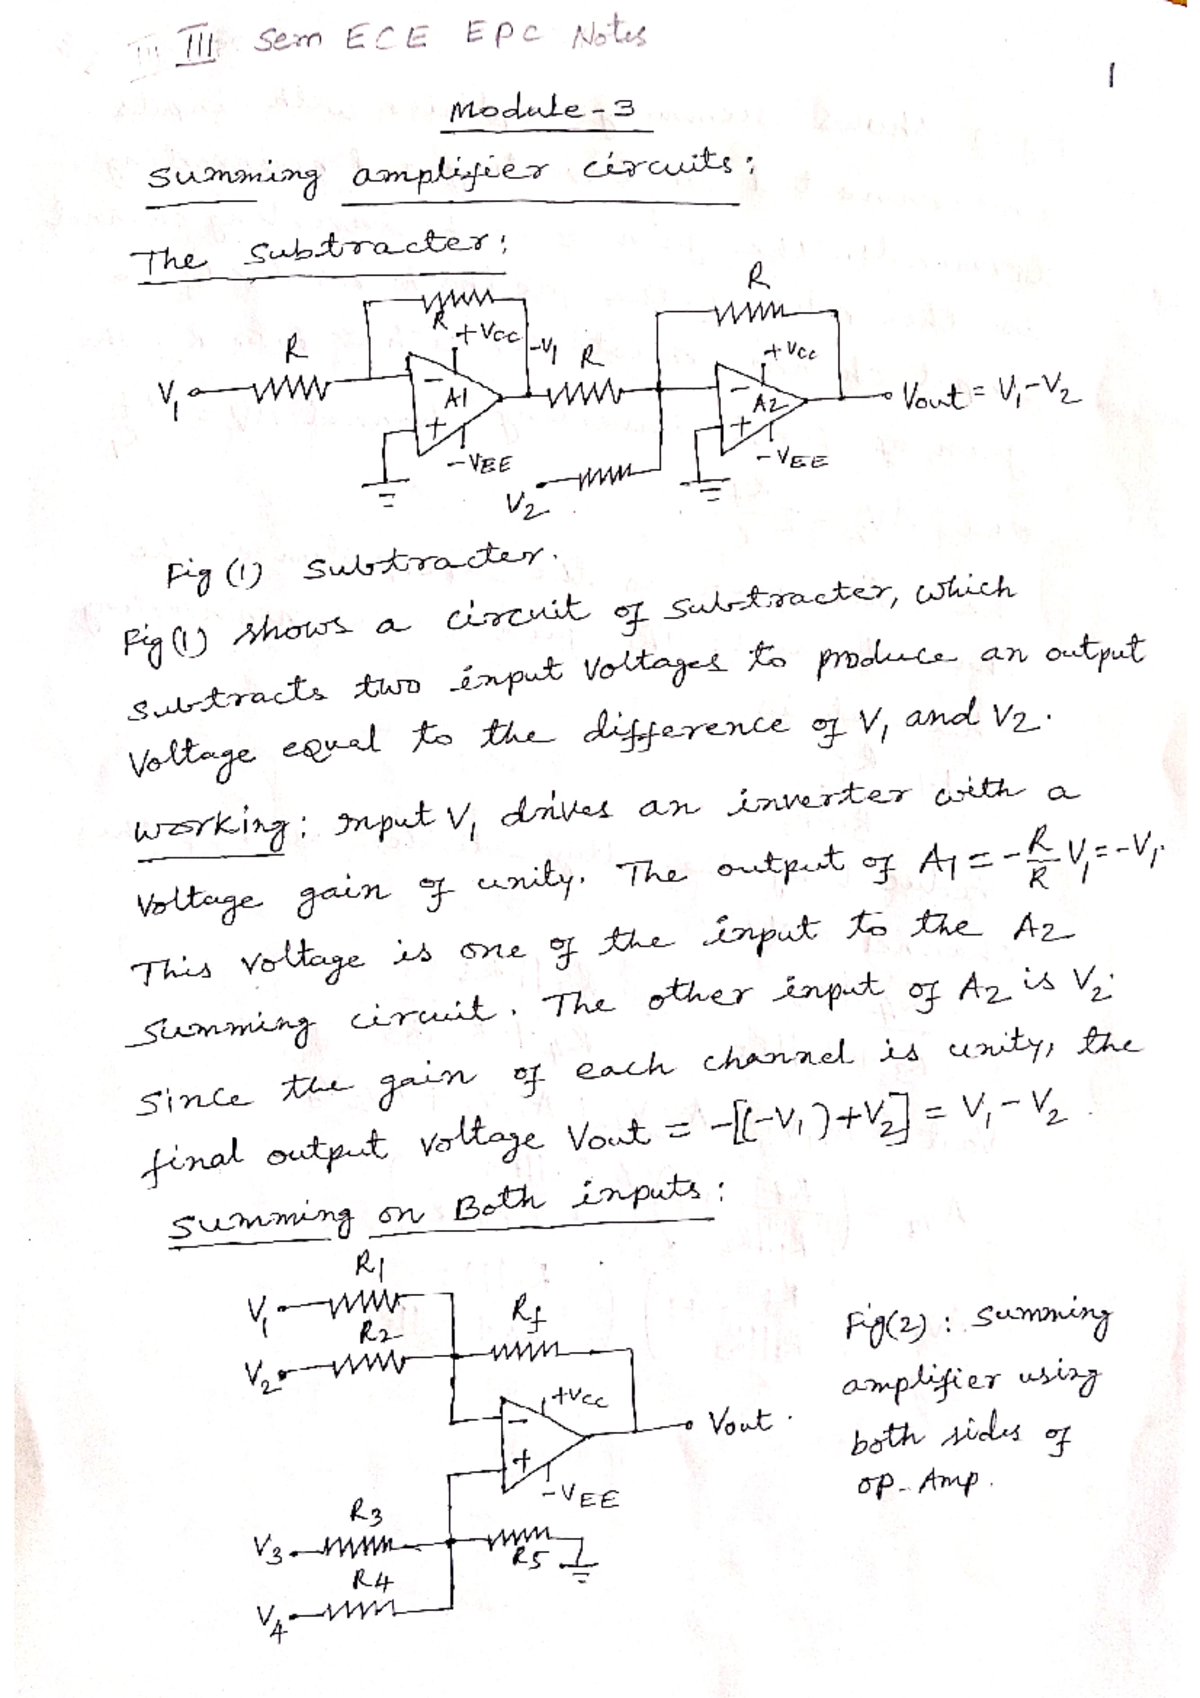 III Sem ECE EPC Notes
1
Module-3
Summing amplifier circuits:
The Subtracter:
R
R
R
+VCC
-V1
R
+VCC
V1
-
A1
+
-
A2
+
Vout = V1-V2
-VEE
-VEE
V2
Fig (1) Subtracter.
Fig (1) shows a circuit of Subtracter, which
Subtracts two input Voltages to produce an output
Voltage equal to the difference of V1 and V2.
Working: Input V1 drives an inverter with a
Voltage gain of unity. The output of A1 = -R/R V1 = -V1.
This Voltage is one of the input to the A2
Summing circuit. The other input of A2 is V2.
Since the gain of each channel is unity, the
final output voltage Vout = -[(-V1)+V2] = V1-V2.
Summing on Both inputs:
R1
V1
Rf
R2
V2
+VCC
-
+
Vout.
-VEE
R3
V3
R5
R4
V4
Fig(2): Summing
amplifier using
both sides of
OP-Amp.